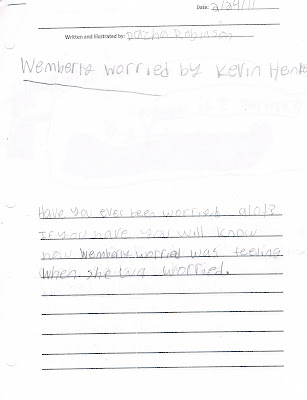 Date: 2/24/11
Written and illustrated by: Dazha Robinson
Wemberly worried by Kevin Henke
Have you ever been worried alot?
If you have you will know
how Wemberly worried was feeling
when she was worried.